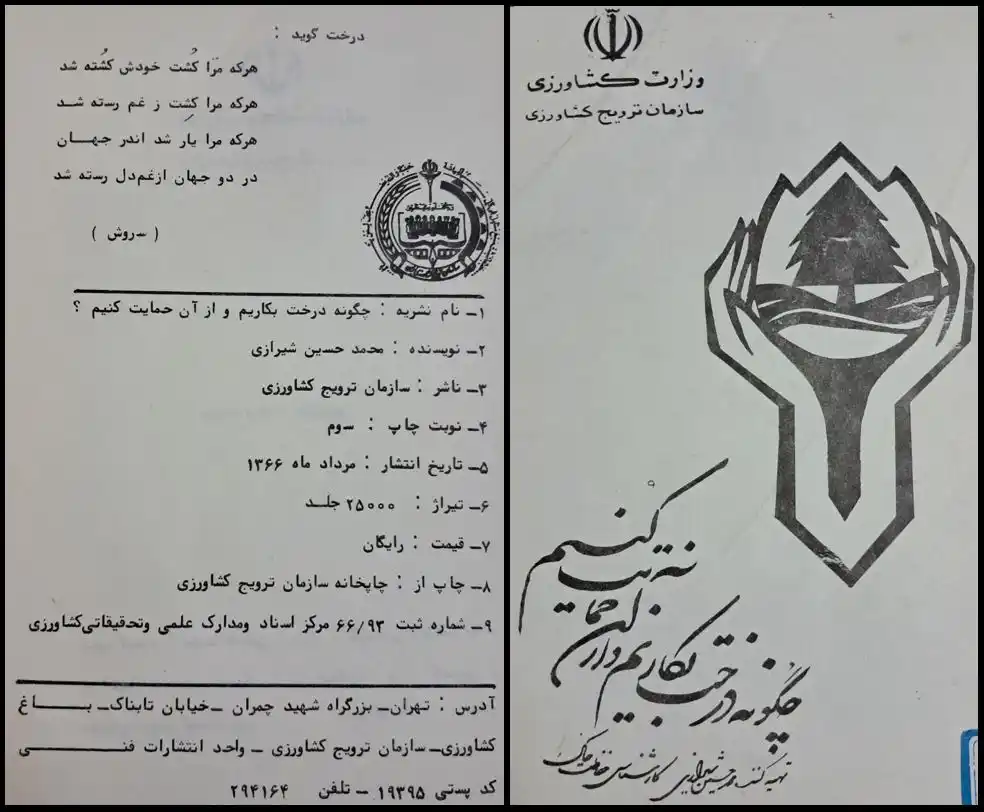 درخت گوید :
هرکه مرا کُشت خودش کُشته شد
هرکه مرا کِشت ز غم رسته شد
هرکه مرا یار شد اندر جهان
در دو جهان ازغم‌دل رسته شد
( سروش )
۱ـ نام نشریه : چگونه درخت بکاریم و از آن حمایت کنیم ؟
۲ـ نویسنده : محمد حسین شیرازی
۳ـ ناشر : سازمان ترویج کشاورزی
۴ـ نوبت چاپ : سوم
۵ـ تاریخ انتشار : مرداد ماه ۱۳۶۶
۶ـ تیراژ : ۲۵۰۰۰ جلد
۷ـ قیمت : رایگان
۸ـ چاپ از : چاپخانه سازمان ترویج کشاورزی
۹ـ شماره ثبت ۶۶/۹۳ مرکز اسناد ومدارک علمی وتحقیقاتی‌کشاورزی
آدرس : تهران‌ـ بزرگراه شهید چمران ـ‌خیابان تابناک‌ـ باغ
کشاورزی‌ـ سازمان ترویج کشاورزی ـ واحد انتشارات فنی
کد پستی ۱۹۳۹۵ ـ تلفن ۲۹۴۱۶۴
وزارت کشاورزی
سازمان ترویج کشاورزی
چگونه درخت بکاریم و از آن حمایت کنیم
تهیه کننده محمد حسین شیرازی کارشناس حفاظت خاک